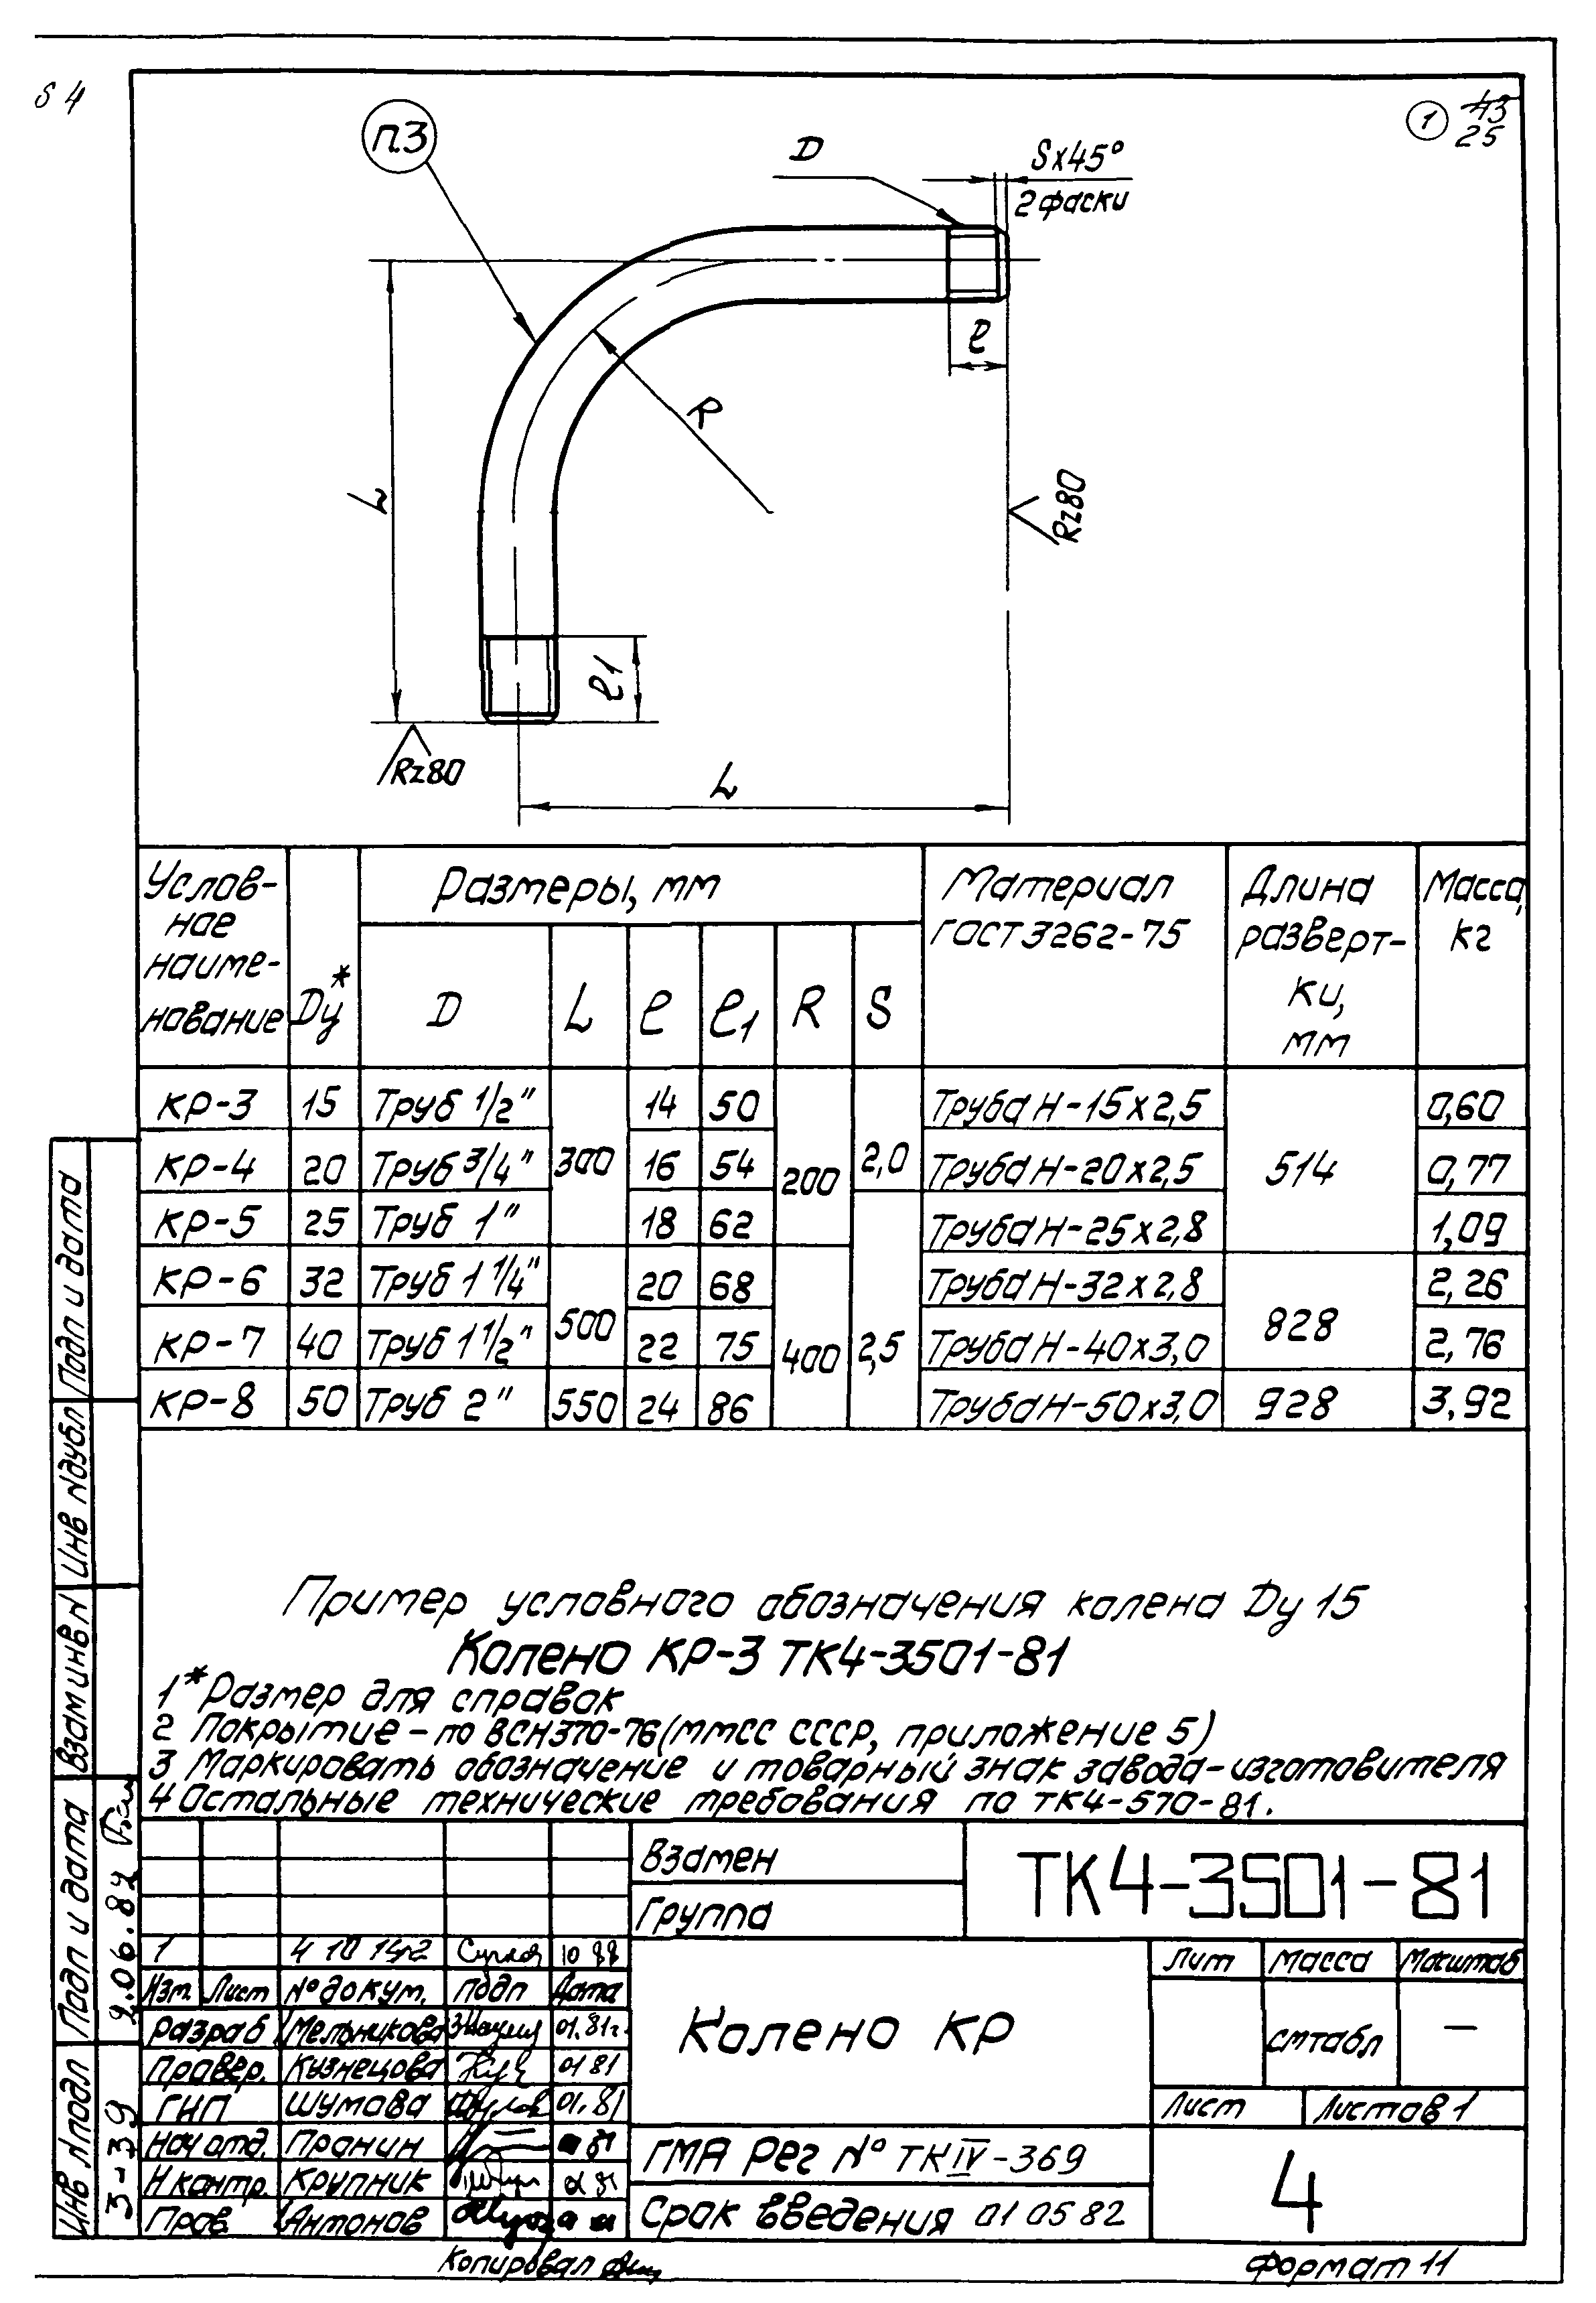 S 4
1
43
25
п.3
D
S×45°
2 фаски
l
R
L
Rz80
l1
Rz80
L
Услов-
ное
наиме-
нование
Dу*
Размеры, мм
D
L
l
l1
R
S
Материал
ГОСТ 3262-75
Длина
разверт-
ки,
мм
Масса,
кг
КР-3 15 Труб 1/2" 14 50 Труба Н-15×2,5 0,60
КР-4 20 Труб 3/4" 300 16 54 200 2,0 Труба Н-20×2,5 514 0,77
КР-5 25 Труб 1" 18 62 Труба Н-25×2,8 1,09
КР-6 32 Труб 1 1/4" 20 68 Труба Н-32×2,8 2,26
КР-7 40 Труб 1 1/2" 500 22 75 400 2,5 Труба Н-40×3,0 828 2,76
КР-8 50 Труб 2" 550 24 86 Труба Н-50×3,0 928 3,92
Пример условного обозначения колена Dу 15
Колено КР-3 ТК4-3501-81
1 * Размер для справок
2 Покрытие – по ВСН370-76 (ММСС СССР, приложение 5)
3 Маркировать обозначение и товарный знак завода-изготовителя
4 Остальные технические требования по ТК4-570-81.
Подп и дата
Инв № дубл
Взам инв №
Подп и дата
Инв № подл
3-39
Взамен
Группа
ТК4-3501-81
1
Изм. Лист № докум. Подп Дата
Разраб Мельникова 01.81г.
Провер. Кузнецова 01 81
ГИП Шумова 01.81
Нач отд. Пронин 81
Н контр. Крупник 81
Пров. Антонов
Колено КР
Лит Масса Масштаб
см табл —
Лист Листов 1
ГМА Рег № ТК IV-369
Срок введения 01 05 82
4
Копировал
Формат 11